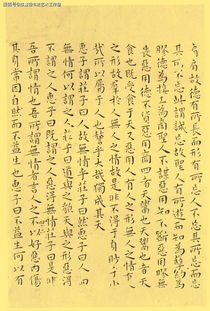 搜狐号@
故德有所長而形有所忘人不忘其所忘而忘
其所不忘此謂誠忘故聖人有所遊而知為孽約為
膠德為接工為商聖人不謀惡用知不斲惡用膠無
喪惡用德不貨惡用商四者天鬻也天鬻也者天
食也既受食於天又惡用人有人之形無人之情有人
之形故群於人無人之情故是非不得於身眇乎小
哉所以屬於人也謷乎大哉獨成其天
惠子謂莊子曰人故無情乎莊子曰然惠子曰人而
無情何以謂之人莊子曰道與之貌天與之形惡得
不謂之人惠子曰既謂之人惡得無情莊子曰是非
吾所謂情也吾所謂無情者言人之不以好惡內傷
其身常因自然而不益生也惠子曰不益生何以有